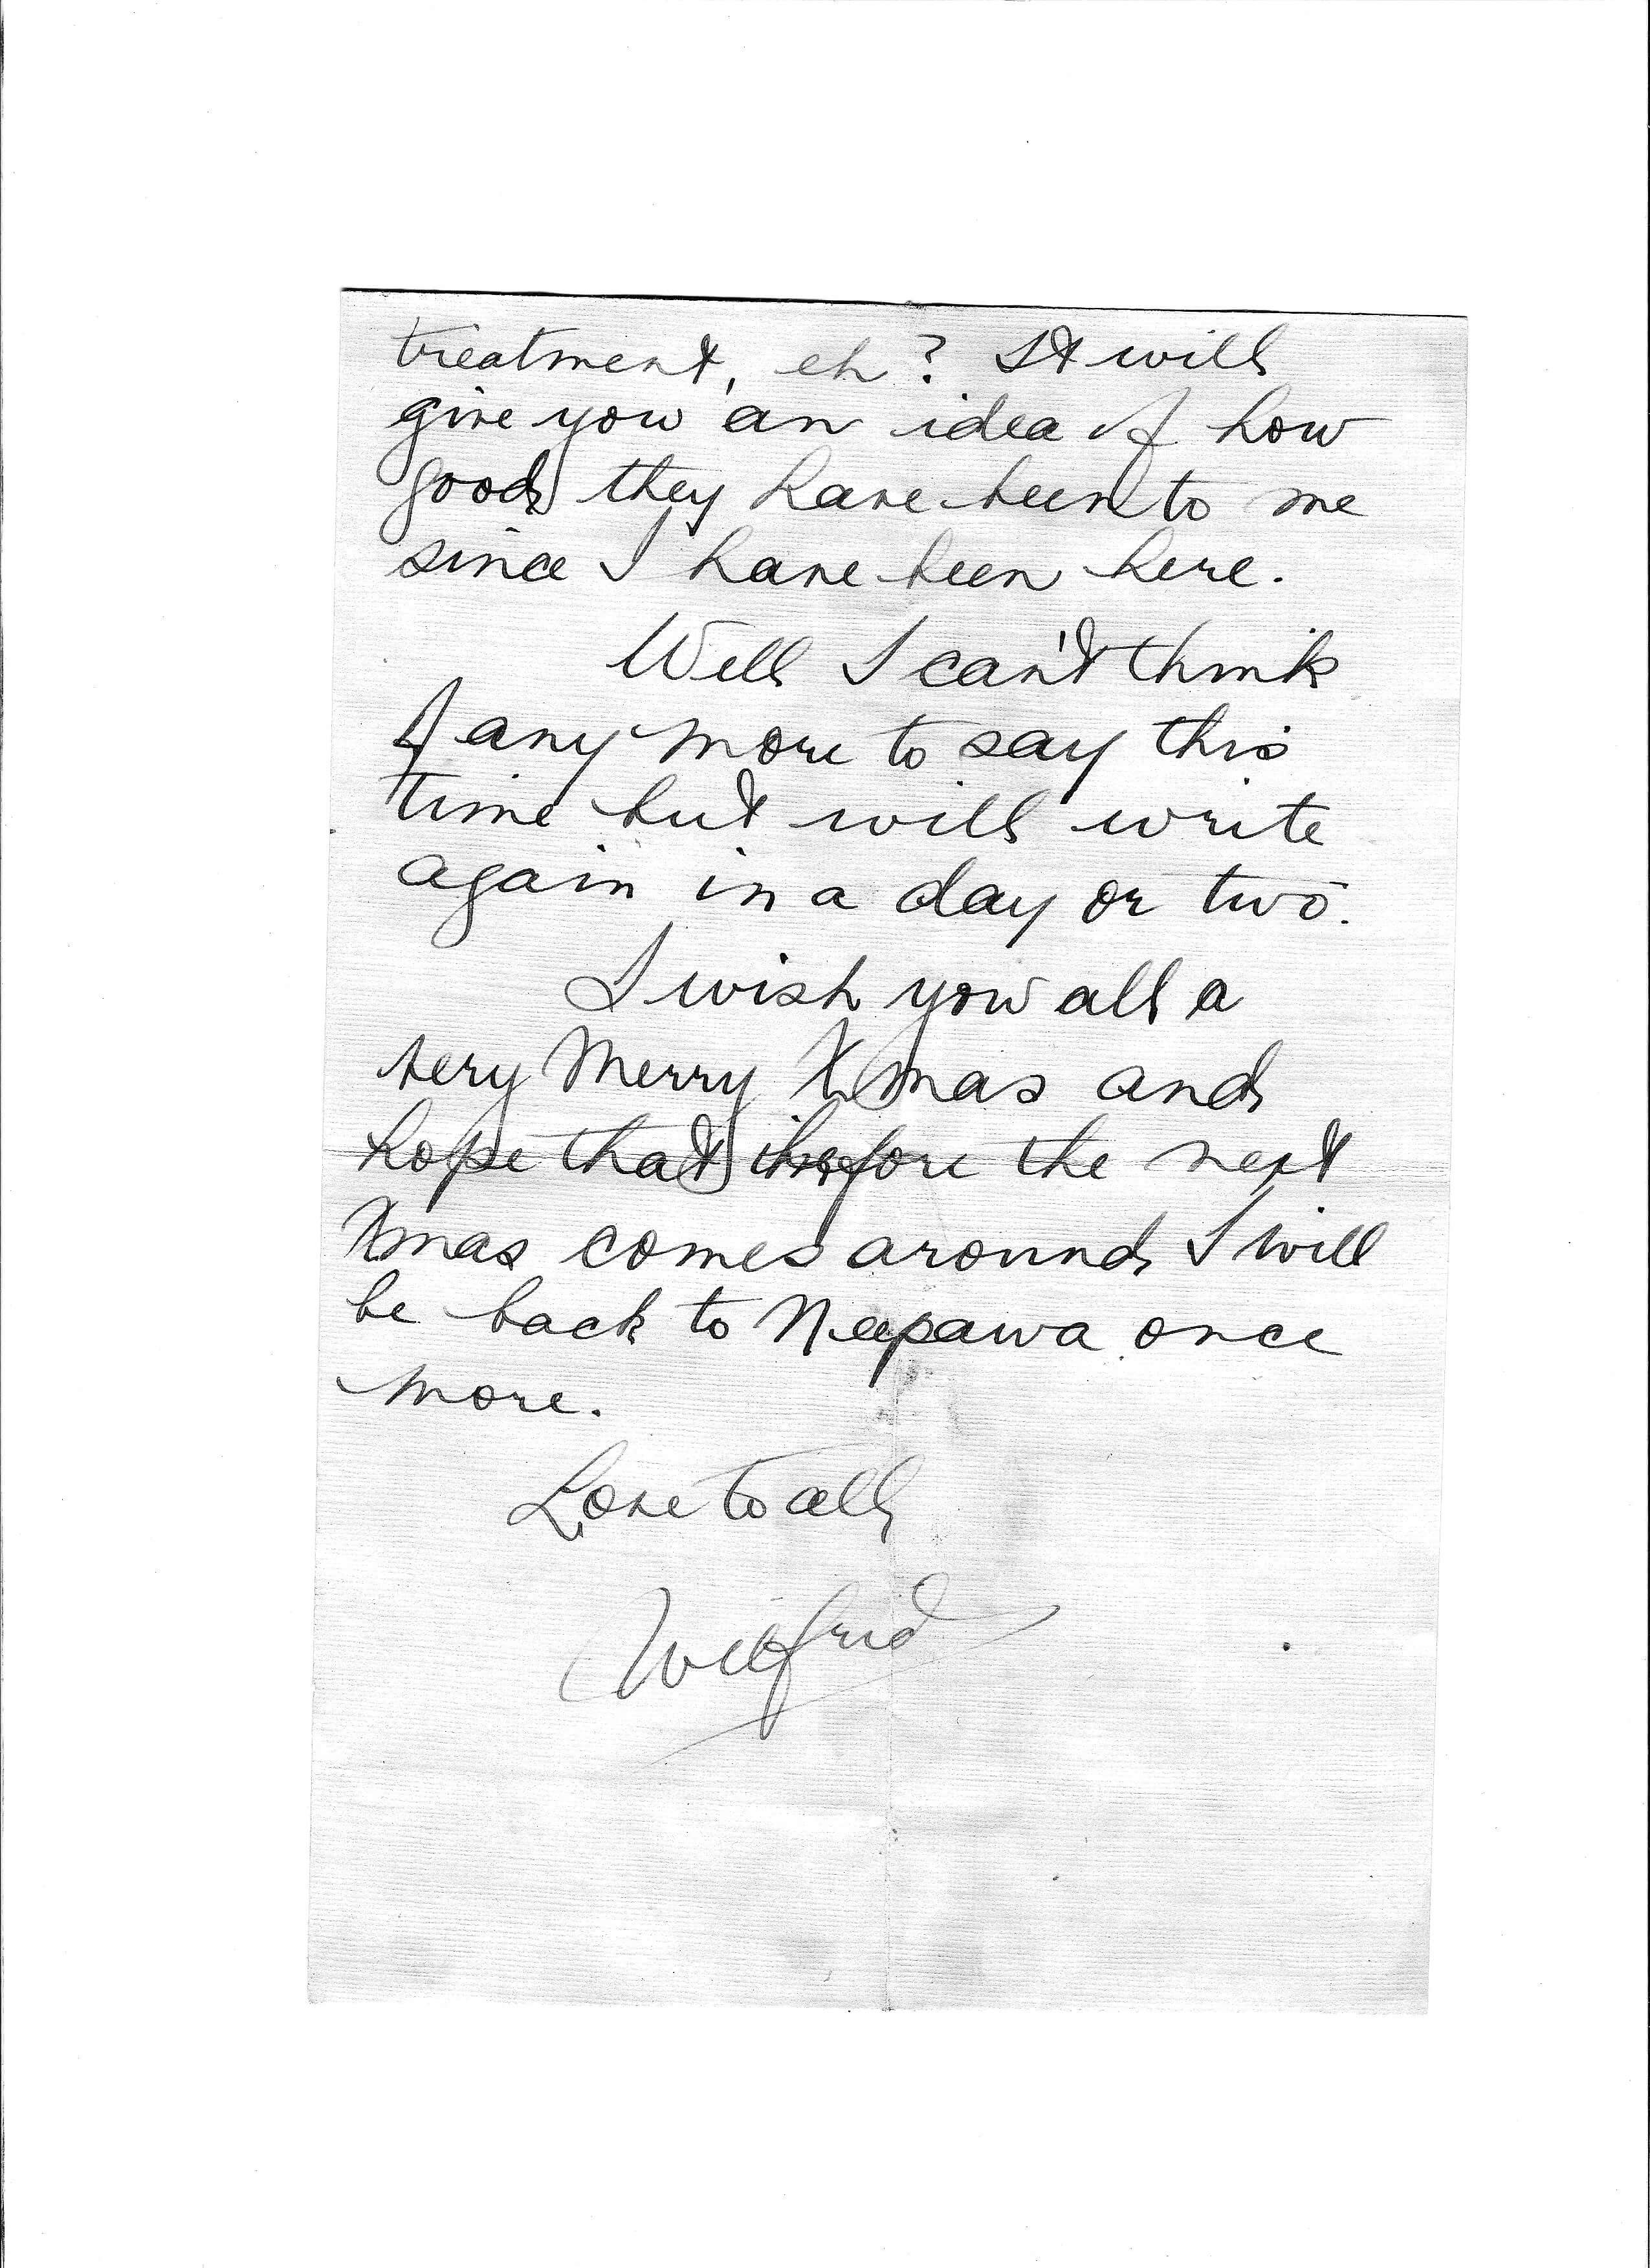 treatment, eh? It will
give you an idea of how
good they have been to me
since I have been here.
Well I can't think
of any more to say this
time but will write
again in a day or two.
I wish you all a
very Merry Xmas and
hope that before the next
Xmas comes around I will
be back to Neepawa once
more.
Love to all
Wilfrid